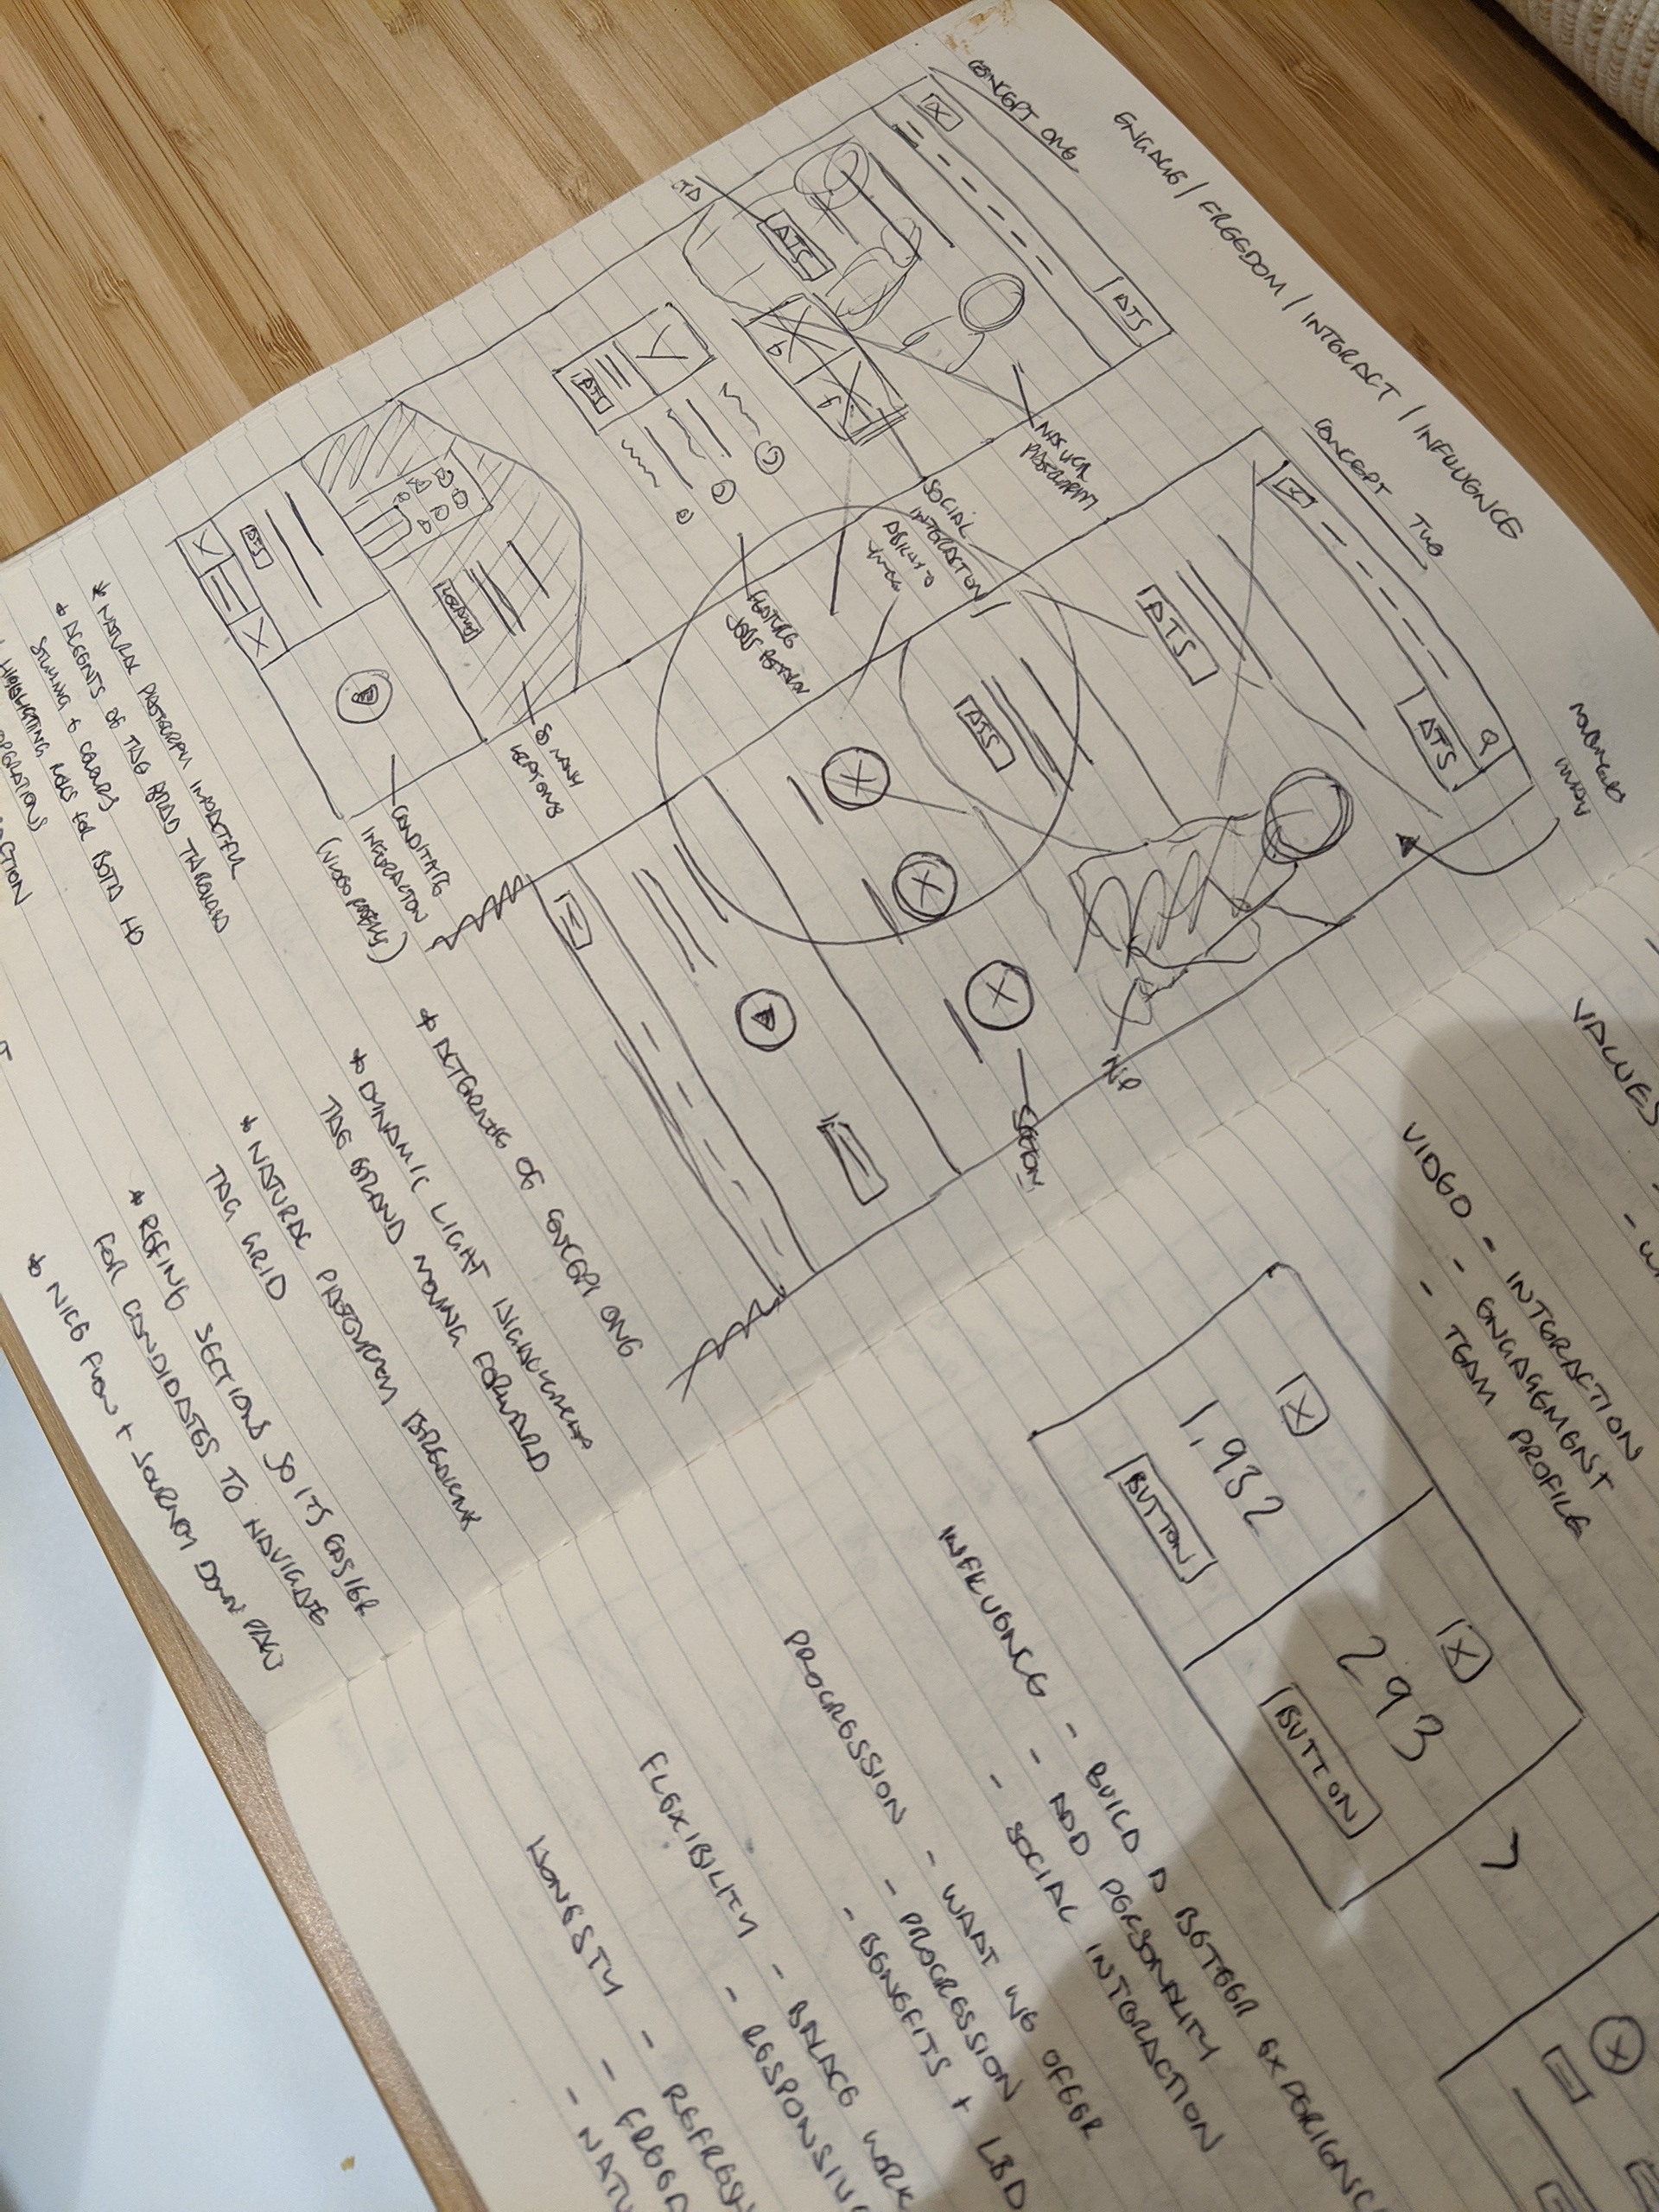 ENGAGE / FREEDOM / INTERACT / INFLUENCE
CONCEPT ONE
ATS
ATS
ATS
SOCIAL
INTERACTION
FEATURE
JOBS
SO MANY
LOCATIONS
ATS
CANDIDATE
INTERACTION
* NATURAL PHOTOGRAPHY IMPACTFUL
* ACCENTS OF THE BRAND THROUGH
STYLING & COLOURS
HIGHLIGHTING ROLES FOR BOTH HO
OPERATIONS
CONCEPT TWO
Q
ATS
ATS
ATS
NP
SECTION
* ALTERNATE OF CONCEPT ONE
* DYNAMIC LIGHT
THE BRAND MOVING FORWARD
* NATURAL PHOTOGRAPHY BREAKING
THE GRID
* REFINE SECTIONS SO ITS EASIER
FOR CANDIDATES TO NAVIGATE
* NICE FLOW + JOURNEY DOWN PAGE
VALUES
VIDEO - INTERACTION
- ENGAGEMENT
- TEAM PROFILE
1,932
BUTTON
293
BUTTON
INFLUENCE - BUILD A BETTER EXPERIENC
- ADD PERSONALITY
- SOCIAL INTERACTION
PROGRESSION - WHAT WE OFFER
- PROGRESSION
- BENEFITS + L&D
FLEXIBILITY - BALACE WORK
- RESPONSIV
HONESTY - REFRESH
- FREED
- NATU